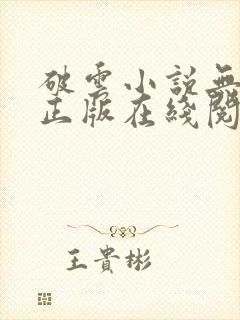 破雲小説無
正版在綫閱
王貴彬